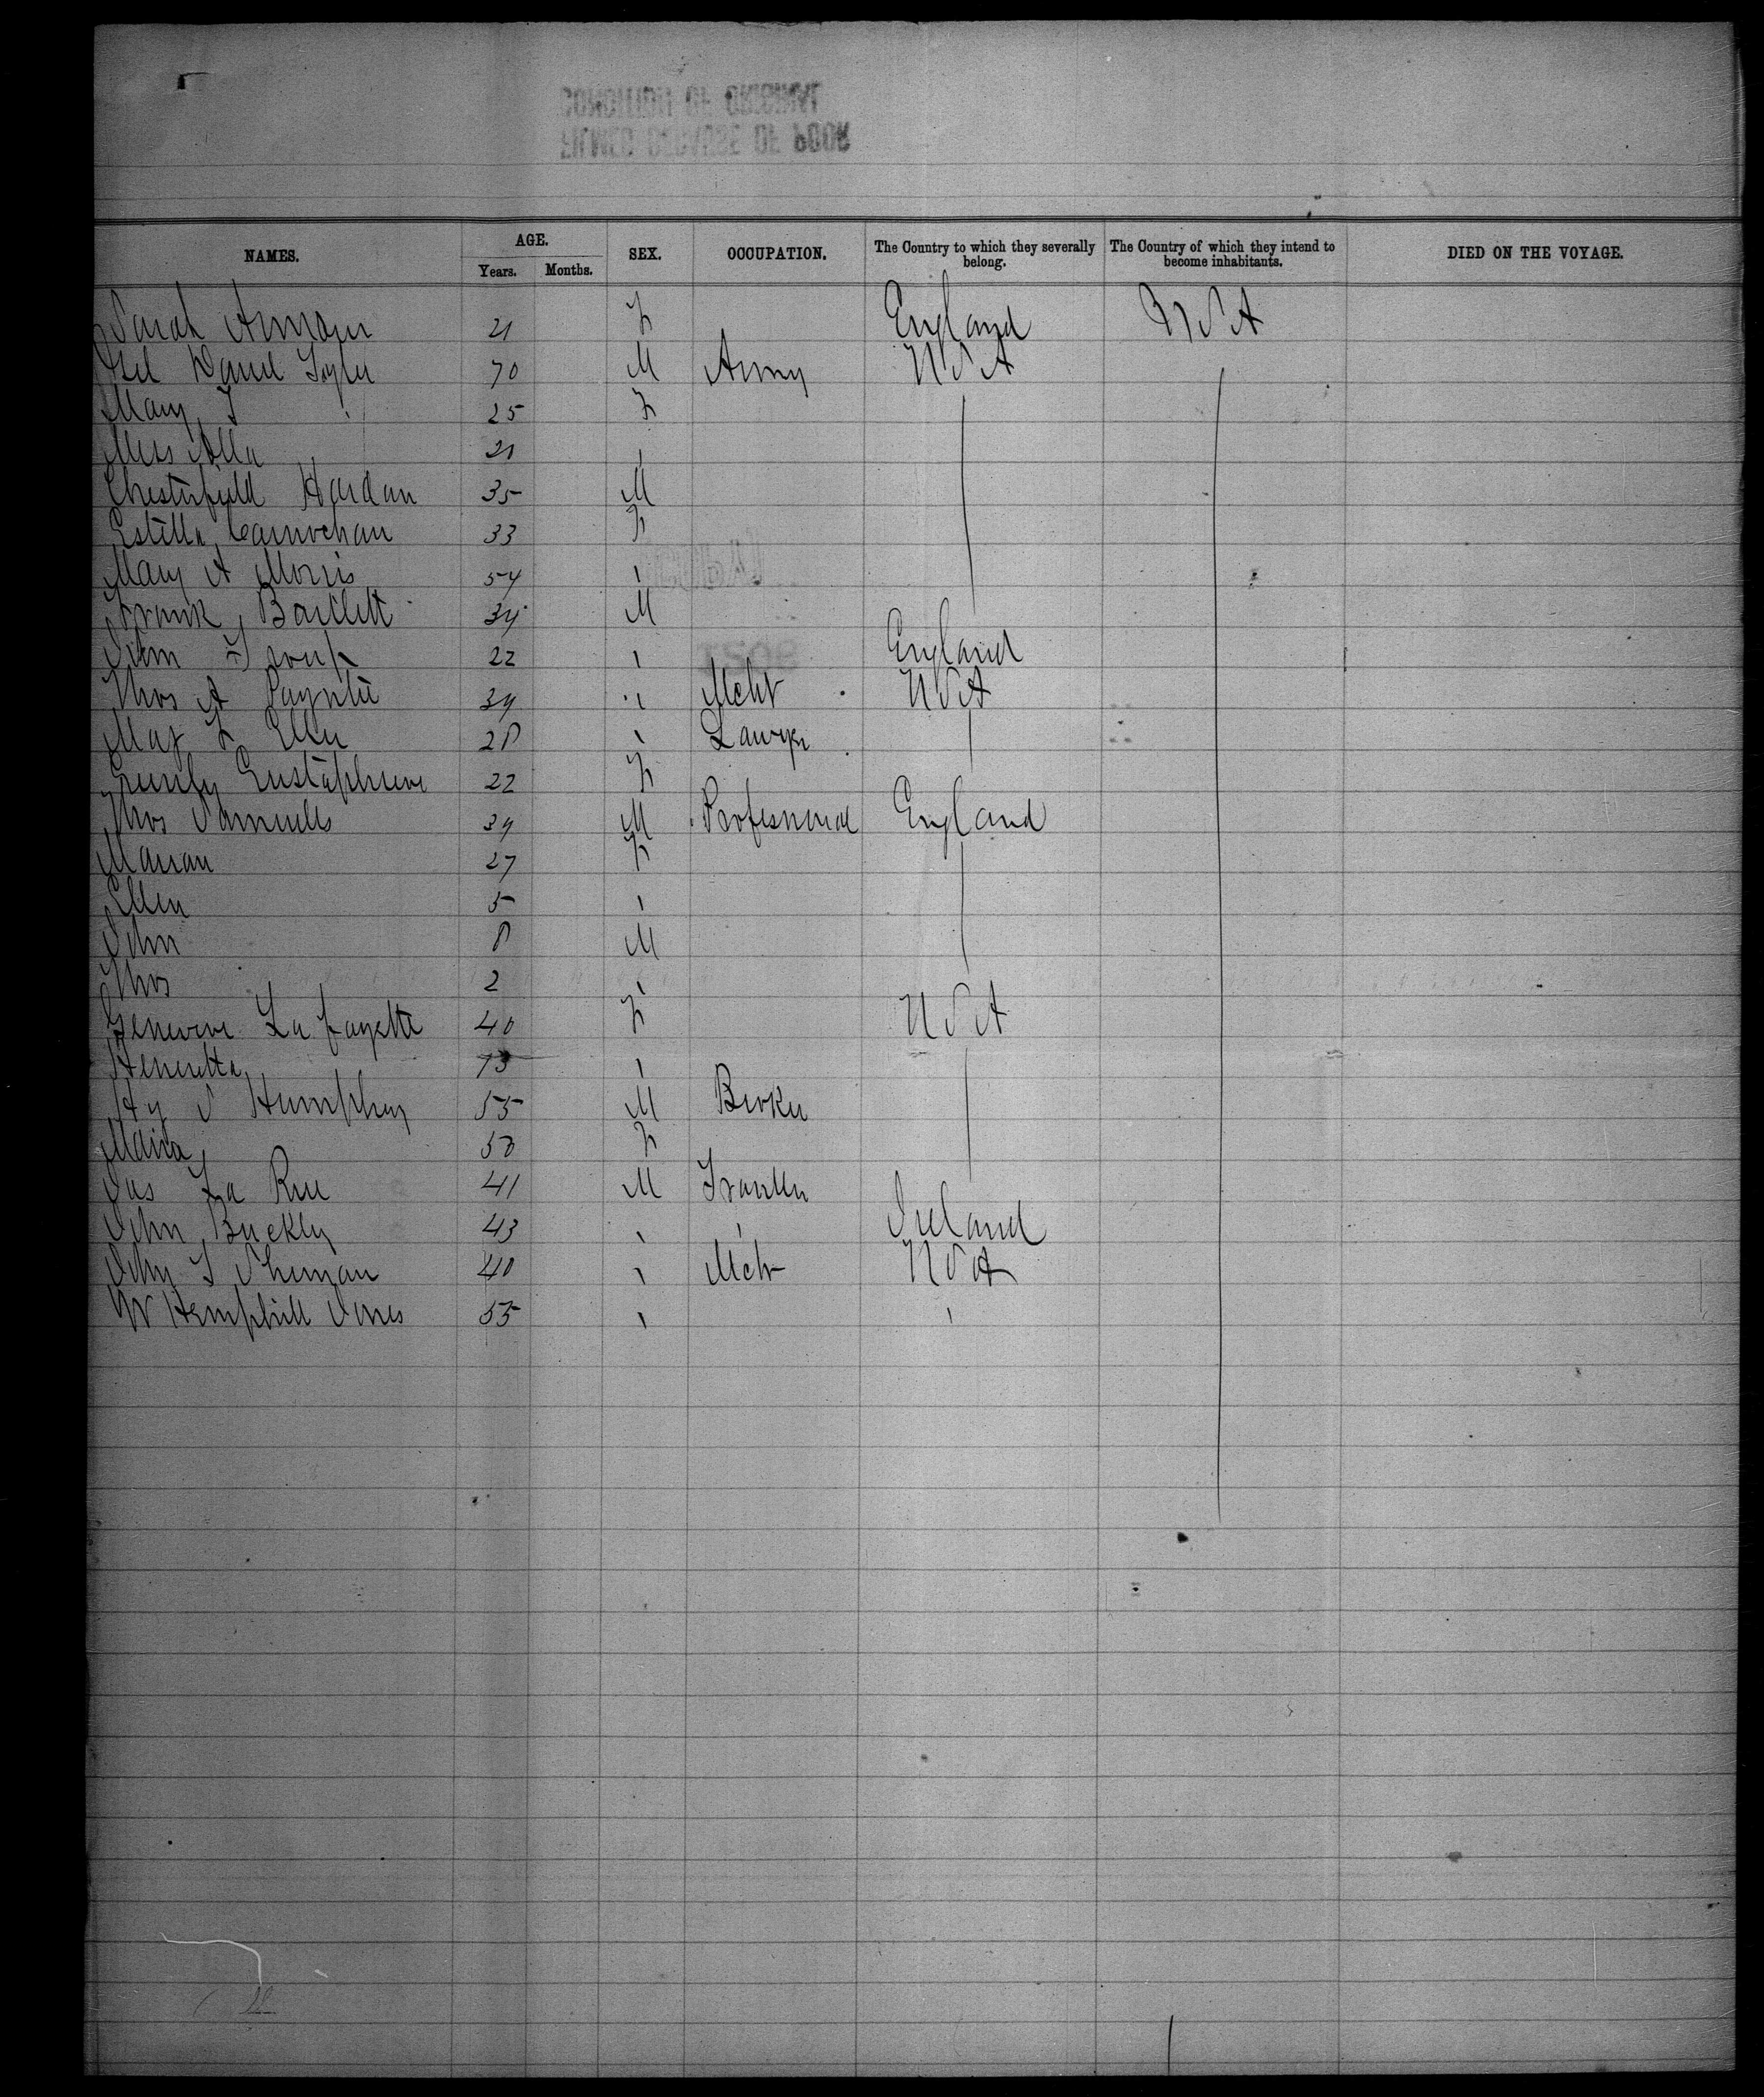 NAMES. AGE. SEX. OCCUPATION. The Country to which they severally belong. The Country of which they intend to become inhabitants. DIED ON THE VOYAGE.
Years. Months.
Sarah 21 F England U S A
Daniel Tyler 70 M Army U S A
Mary T " 25 F
Miss 21 "
Chesterfield Hardan 35 M
Estella Carnochan 33 F
Mary A Morris 54 "
Frank Bartlett 34 M
John 22 " England
Thos A 34 " Mcht U S A
28 " Lawyer
22 F
Thos Samuells 34 M Professional England
Marian 27 F
Ellen 5 "
John 8 M
Thos 2 "
Genevive La fayette 40 F U S A
Henrietta 73 "
Hy S Humphrey 55 M Broker
Maria 50 F
Jas La Rue 41 M
John Buckley 43 " " Ireland
John T Sherman 40 " Mcht U S A
W Hemphill Jones 55 " "